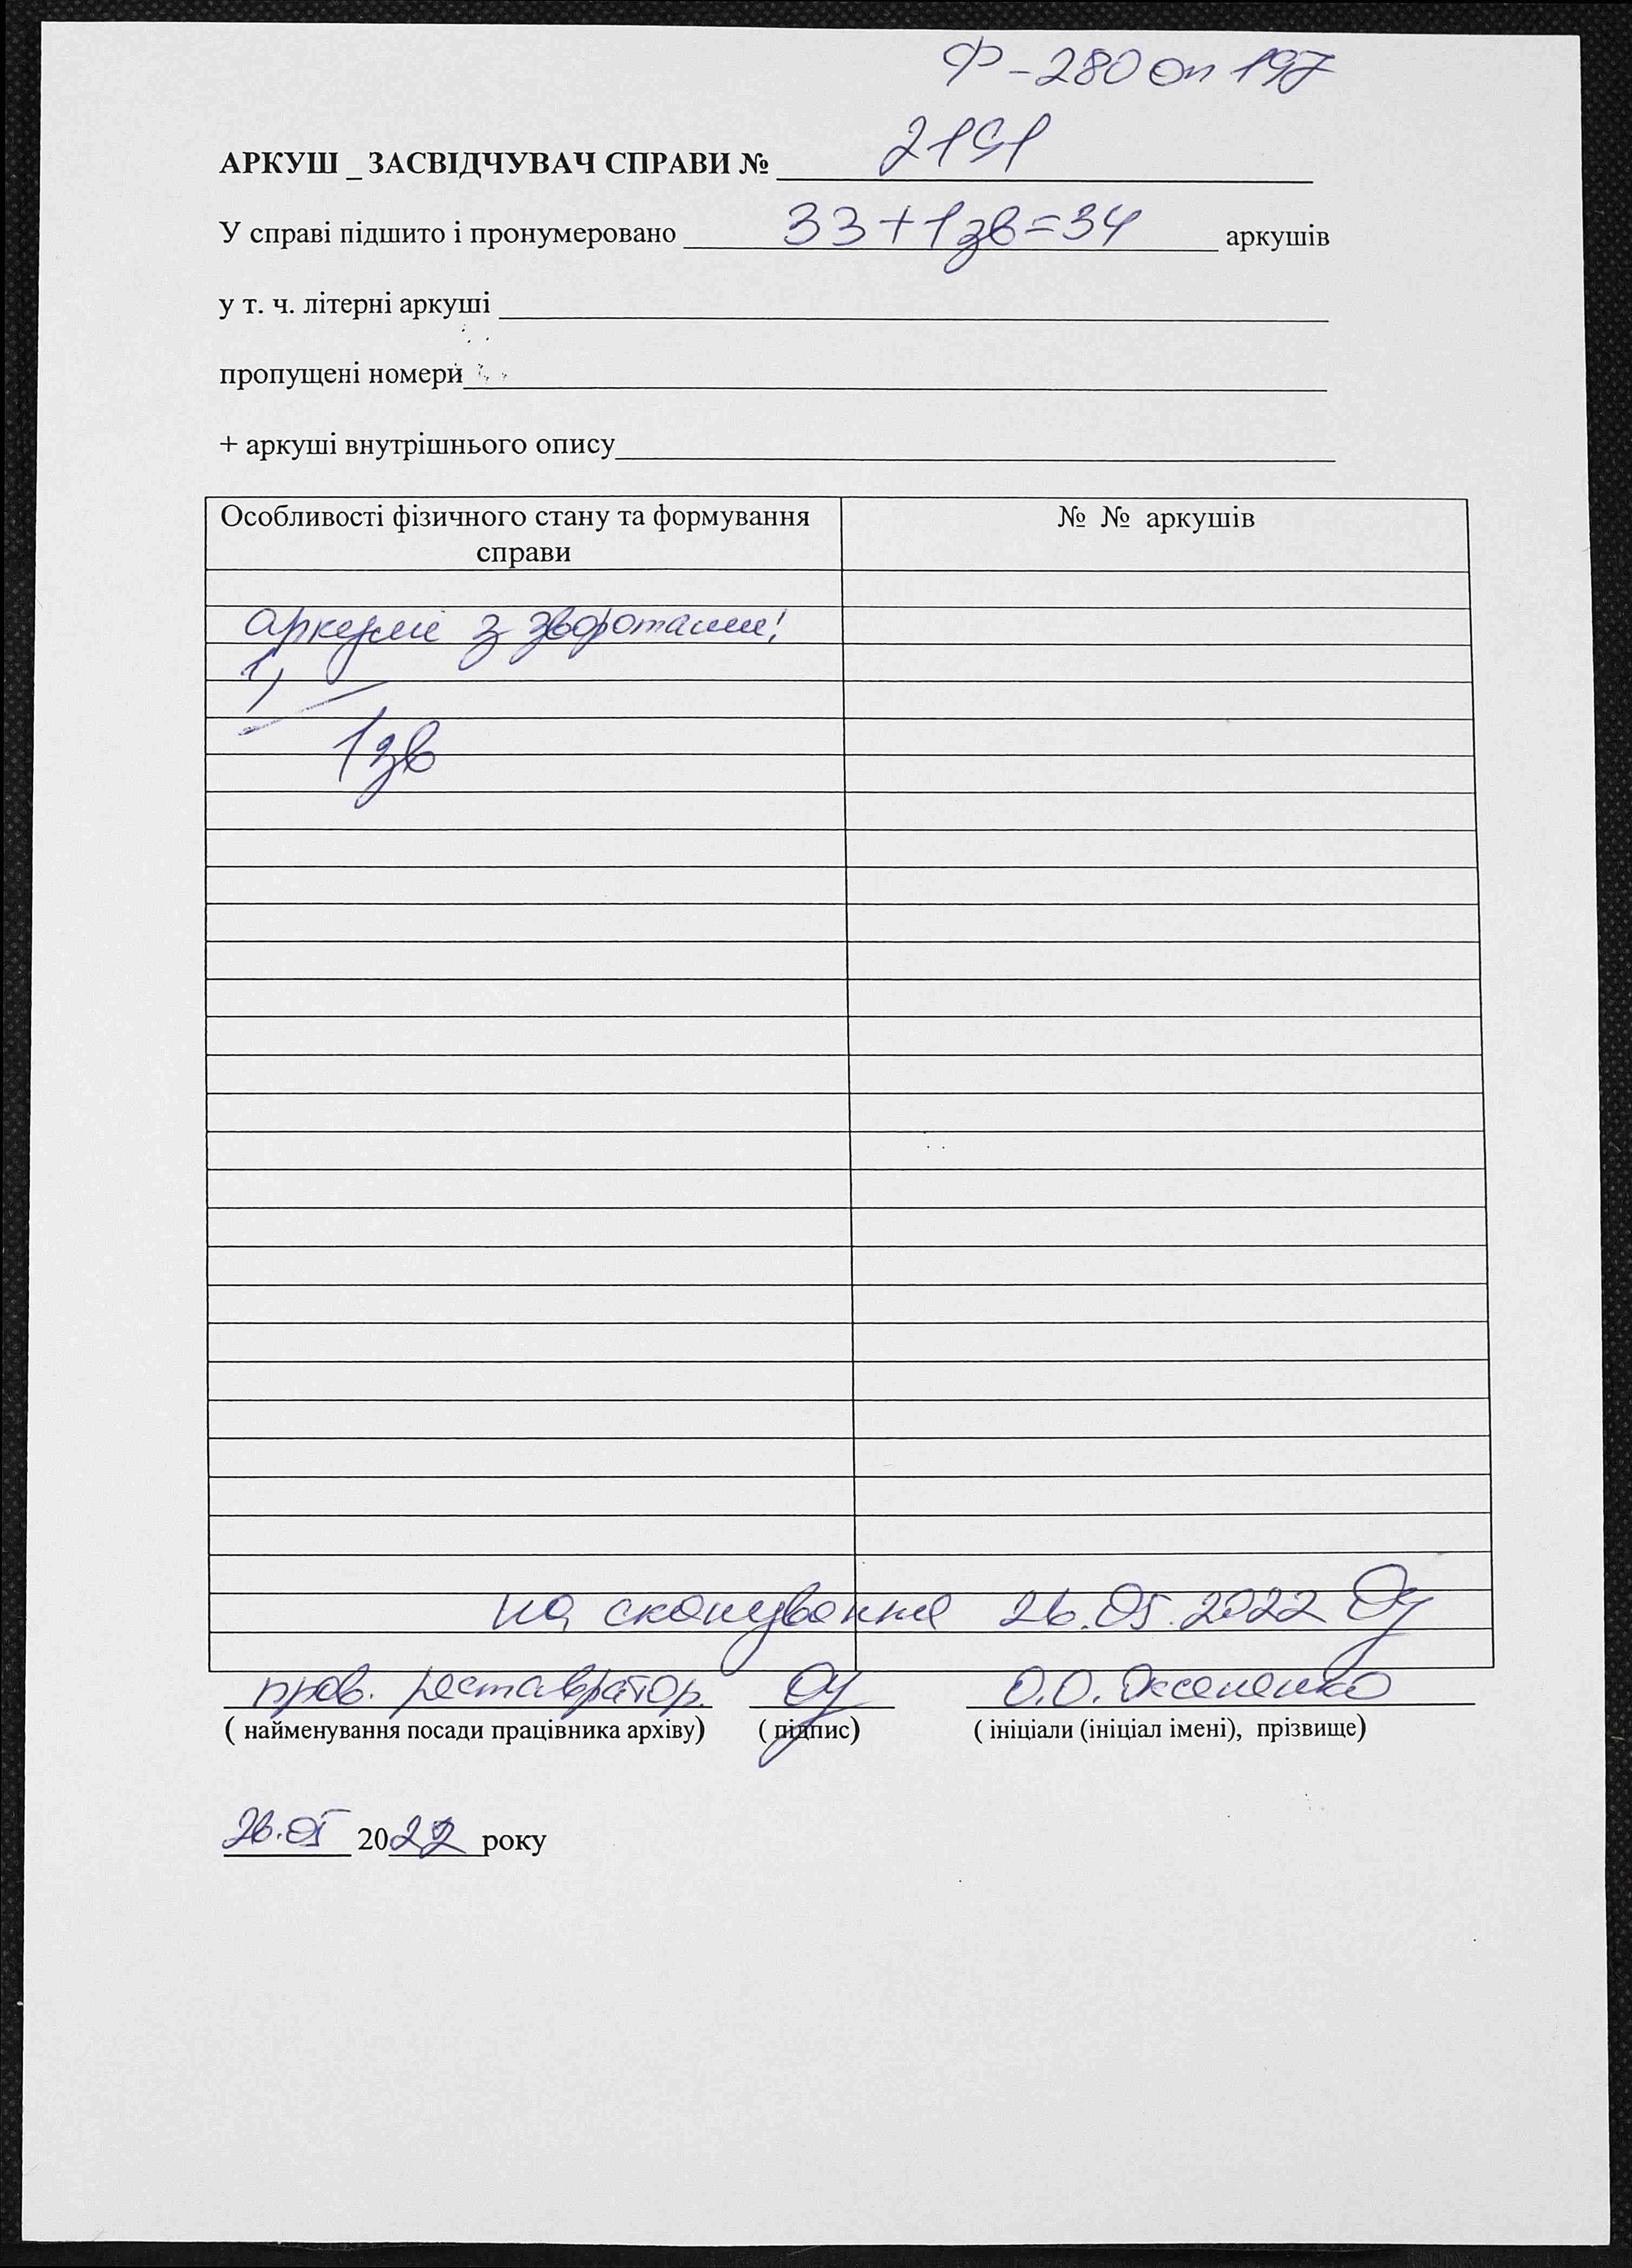 Ф-280 оп 197
АРКУШ _ ЗАСВІДЧУВАЧ СПРАВИ № 2191
У справі підшито і пронумеровано 33+1зв=34 аркушів
у т. ч. літерні аркуші
пропущені номери
+ аркуші внутрішнього опису
Особливості фізичного стану та формування № № аркушів
справи
аркуші з зворотами:
1,
1зв
на сканування 26.05.2022
пров. реставратор О.О. Оксененко
( найменування посади працівника архіву) ( підпис) ( ініціали (ініціал імені), прізвище)
26.05 2022 року